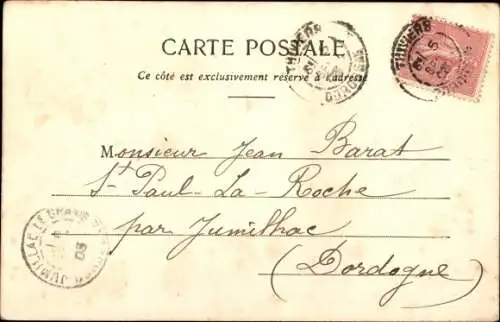 CARTE POSTALE
Ce côté est exclusivement réservé à l'adresse
THIVIERS
DORDOGNE
THIVIERS
5
Monsieur Jean Barat
St Paul-La-Roche
par Jumilhac
(Dordogne)
JUMILHAC LE GRAND
03